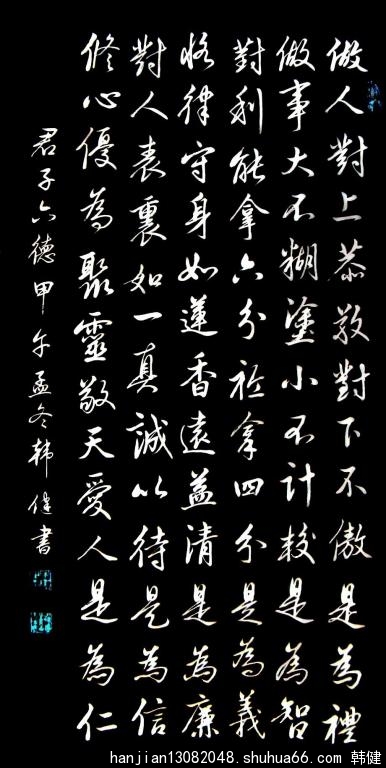 做人對上恭敬對下不傲是為禮
做事大不糊塗小不計較是為智
對利能拿六分祗拿四分是為義
恪律守身如蓮香遠益清是為廉
對人表裏如一真誠以待是為信
修心優為聚靈敬天愛人是為仁
君子六德甲午孟冬韩健書
hanjian13082048.shuhua66.com 韩健